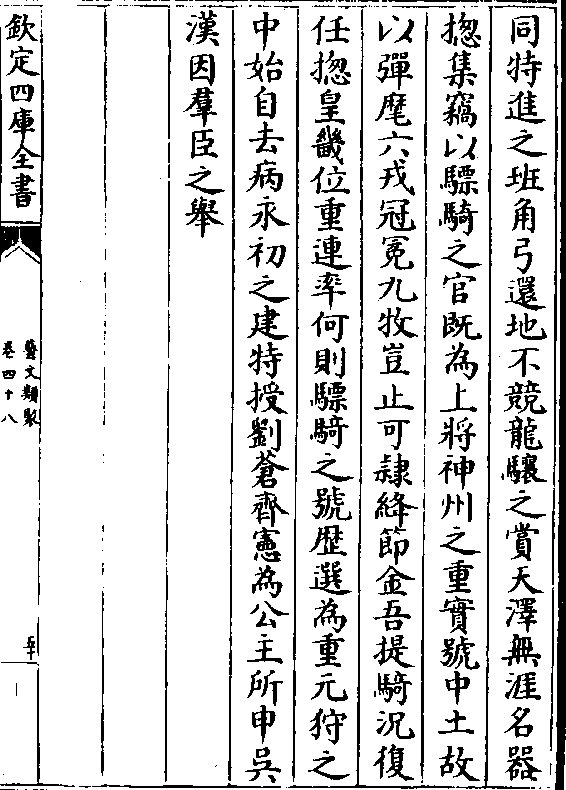 同特進之班角弓還地不競龍驤之賞天澤無涯名器
揔集竊以驃騎之官既為上將神州之重實號中土故
以彈壓六戎冠冕九牧豈止可隷絳節金吾提騎況復
任揔皇畿位重連率何則驃騎之號歴選為重元狩之
中始自去病永初之建特授劉蒼齊憲為公主所申吳
漢因羣臣之舉
欽定四庫全書
藝文類聚
卷四十八